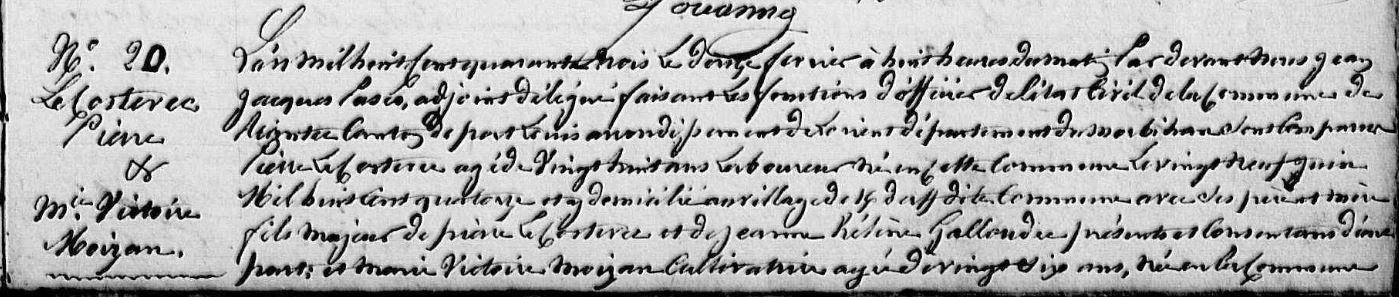 Jouanno
N.° 20.
Le Costevec
Pierre
&
M.ie Victoire
Moizan.
L'an mil huit cent quarante trois le douze fevrier à huit heures du matin par devant nous jean
jacques adjoint délégué faisant les fonctions d'officier de l'état civil de la commune de
Riantec canton de port Louis arrondissement de Lorient département du morbihan sont comparus
Pierre Le Costevec agé de vingt huit ans Laboureur né en cette commune le vingt neuf juin
Mil huit cent quatorze et y domicilié au village de dite commune avec ses père et mère
fils majeur de pierre Le Costevec et de jeanne hélène Gallondec présents et consentans d'une
part; et marie Victoire moizan cultivatrice agée de vingt six ans, née en la commune